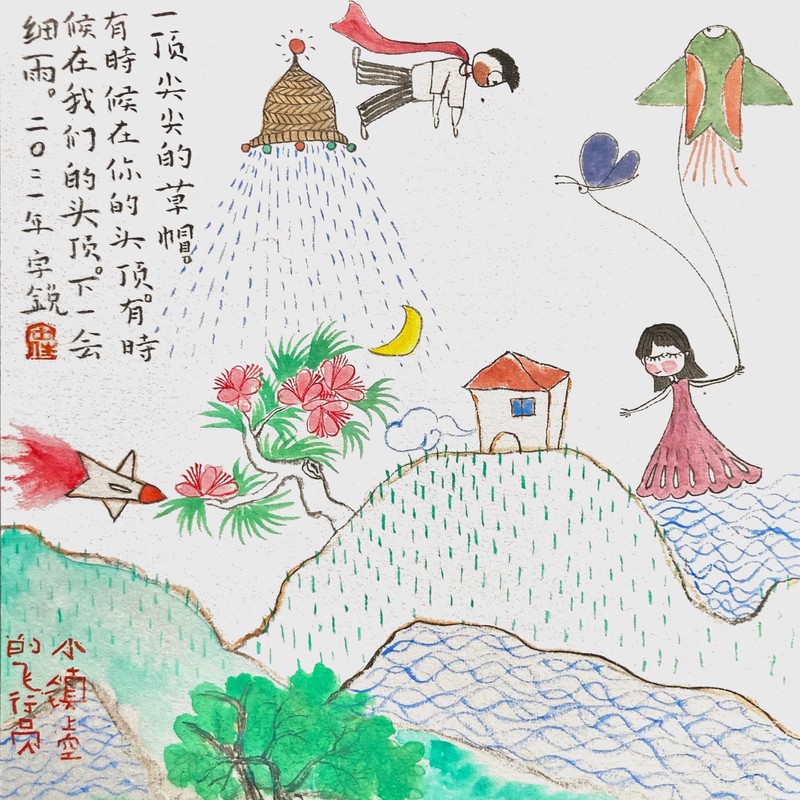 一顶尖尖的草帽。
有時候在你的头顶。有時
候在我们的头顶。下一会
细雨。二〇二一年
小鎮上空
的飞行员